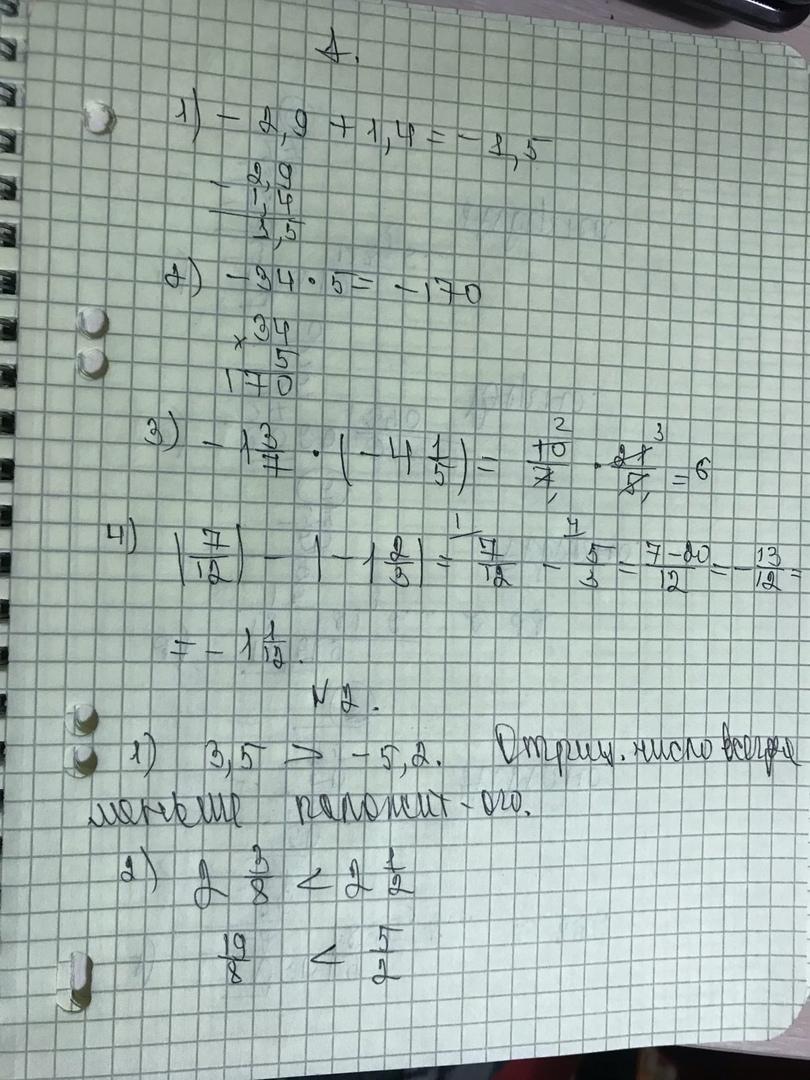 1.
1) - 2,9 + 1,4 = - 1,5
- 2,9
1,4
1,5
2) -34 · 5 = -170
× 34
5
170
3) - 1 3/7 · (- 4 1/5) = 10/7 · 21/5 = 6
4) |7/12| - |-1 2/3| = 7/12 - 5/3 = 7-20/12 = -13/12 =
= - 1 1/12.
N 2.
1) 3,5 > -5,2. Отриц. число всегда
меньше положит-ого.
2) 2 3/8 < 2 1/2
19/8 < 5/2